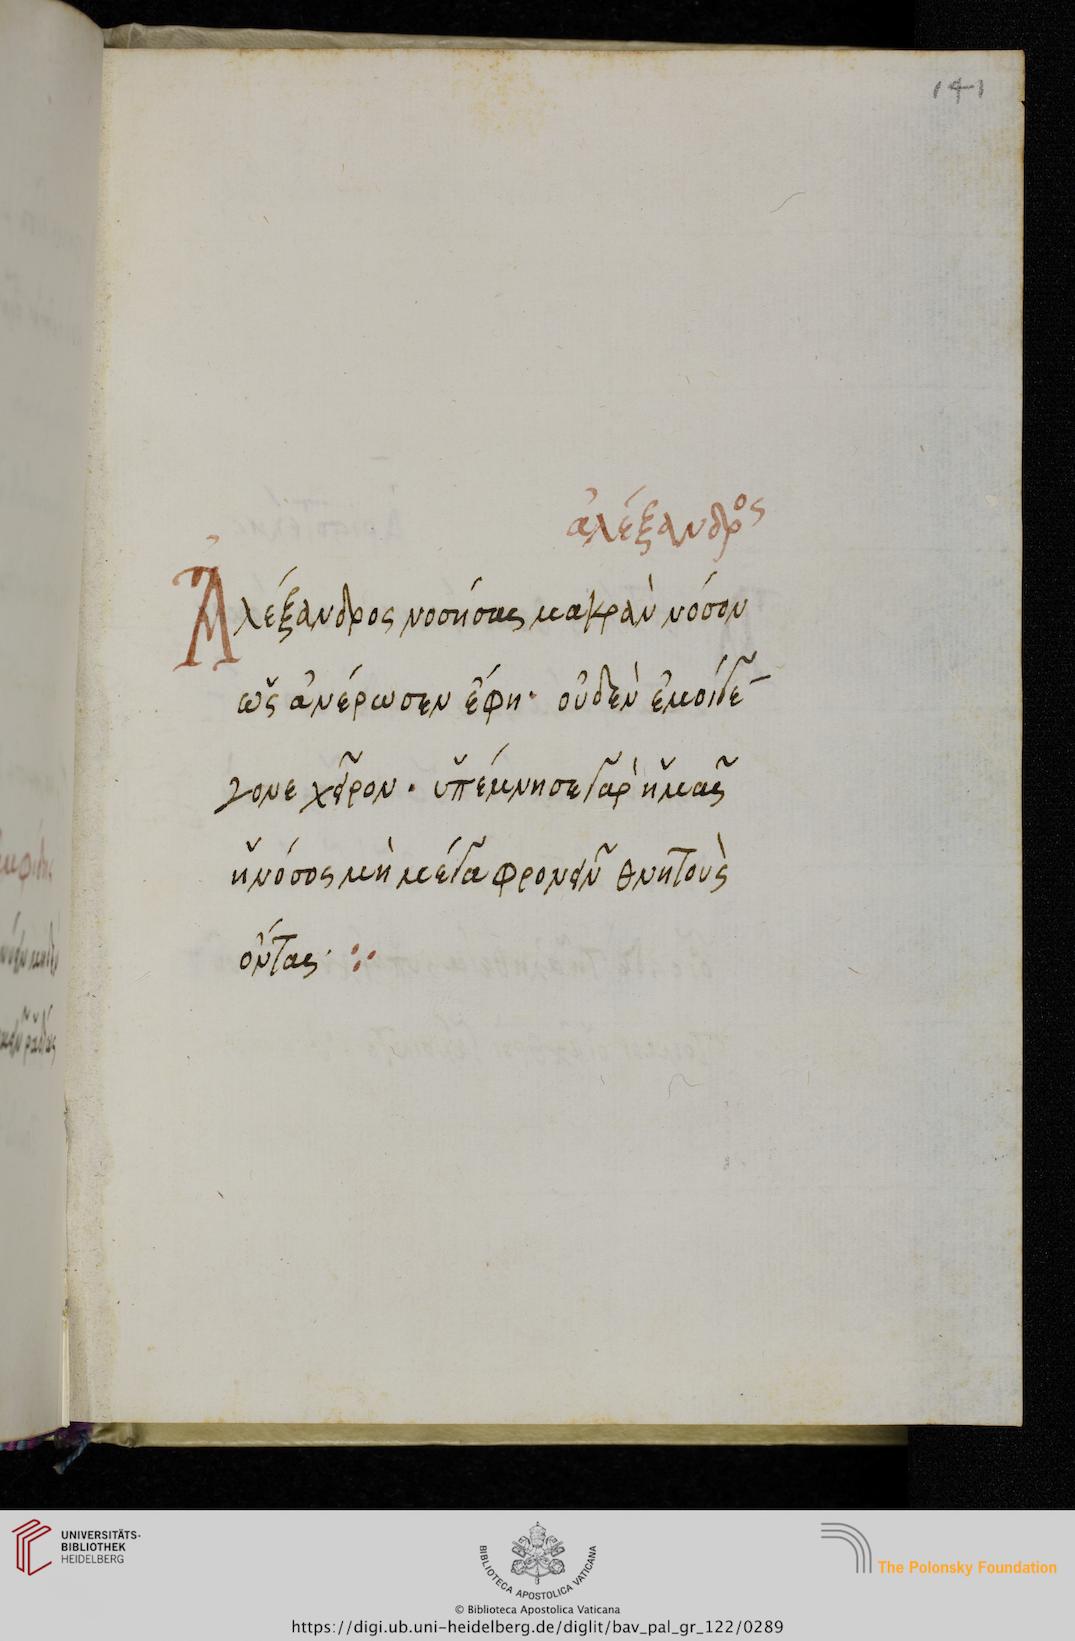 141
ἀλέξανδρος
Ἀλέξανδρος νοσήσας μακρὰν νόσον
ὡς ἀνέρωσεν ἔφη· οὐδὲν ἐμοὶ δὲ
γονε χεῖρον· ὑπέμνησε γὰρ ἡμᾶς
ἡ νόσος μὴ μέγα φρονεῖν θνητοὺς
ὄντας·
UNIVERSITÄTS-
BIBLIOTHEK
HEIDELBERG
BIBLIOTECA APOSTOLICA VATICANA
The Polonsky Foundation
© Biblioteca Apostolica Vaticana
https://digi.ub.uni-heidelberg.de/diglit/bav_pal_gr_122/0289